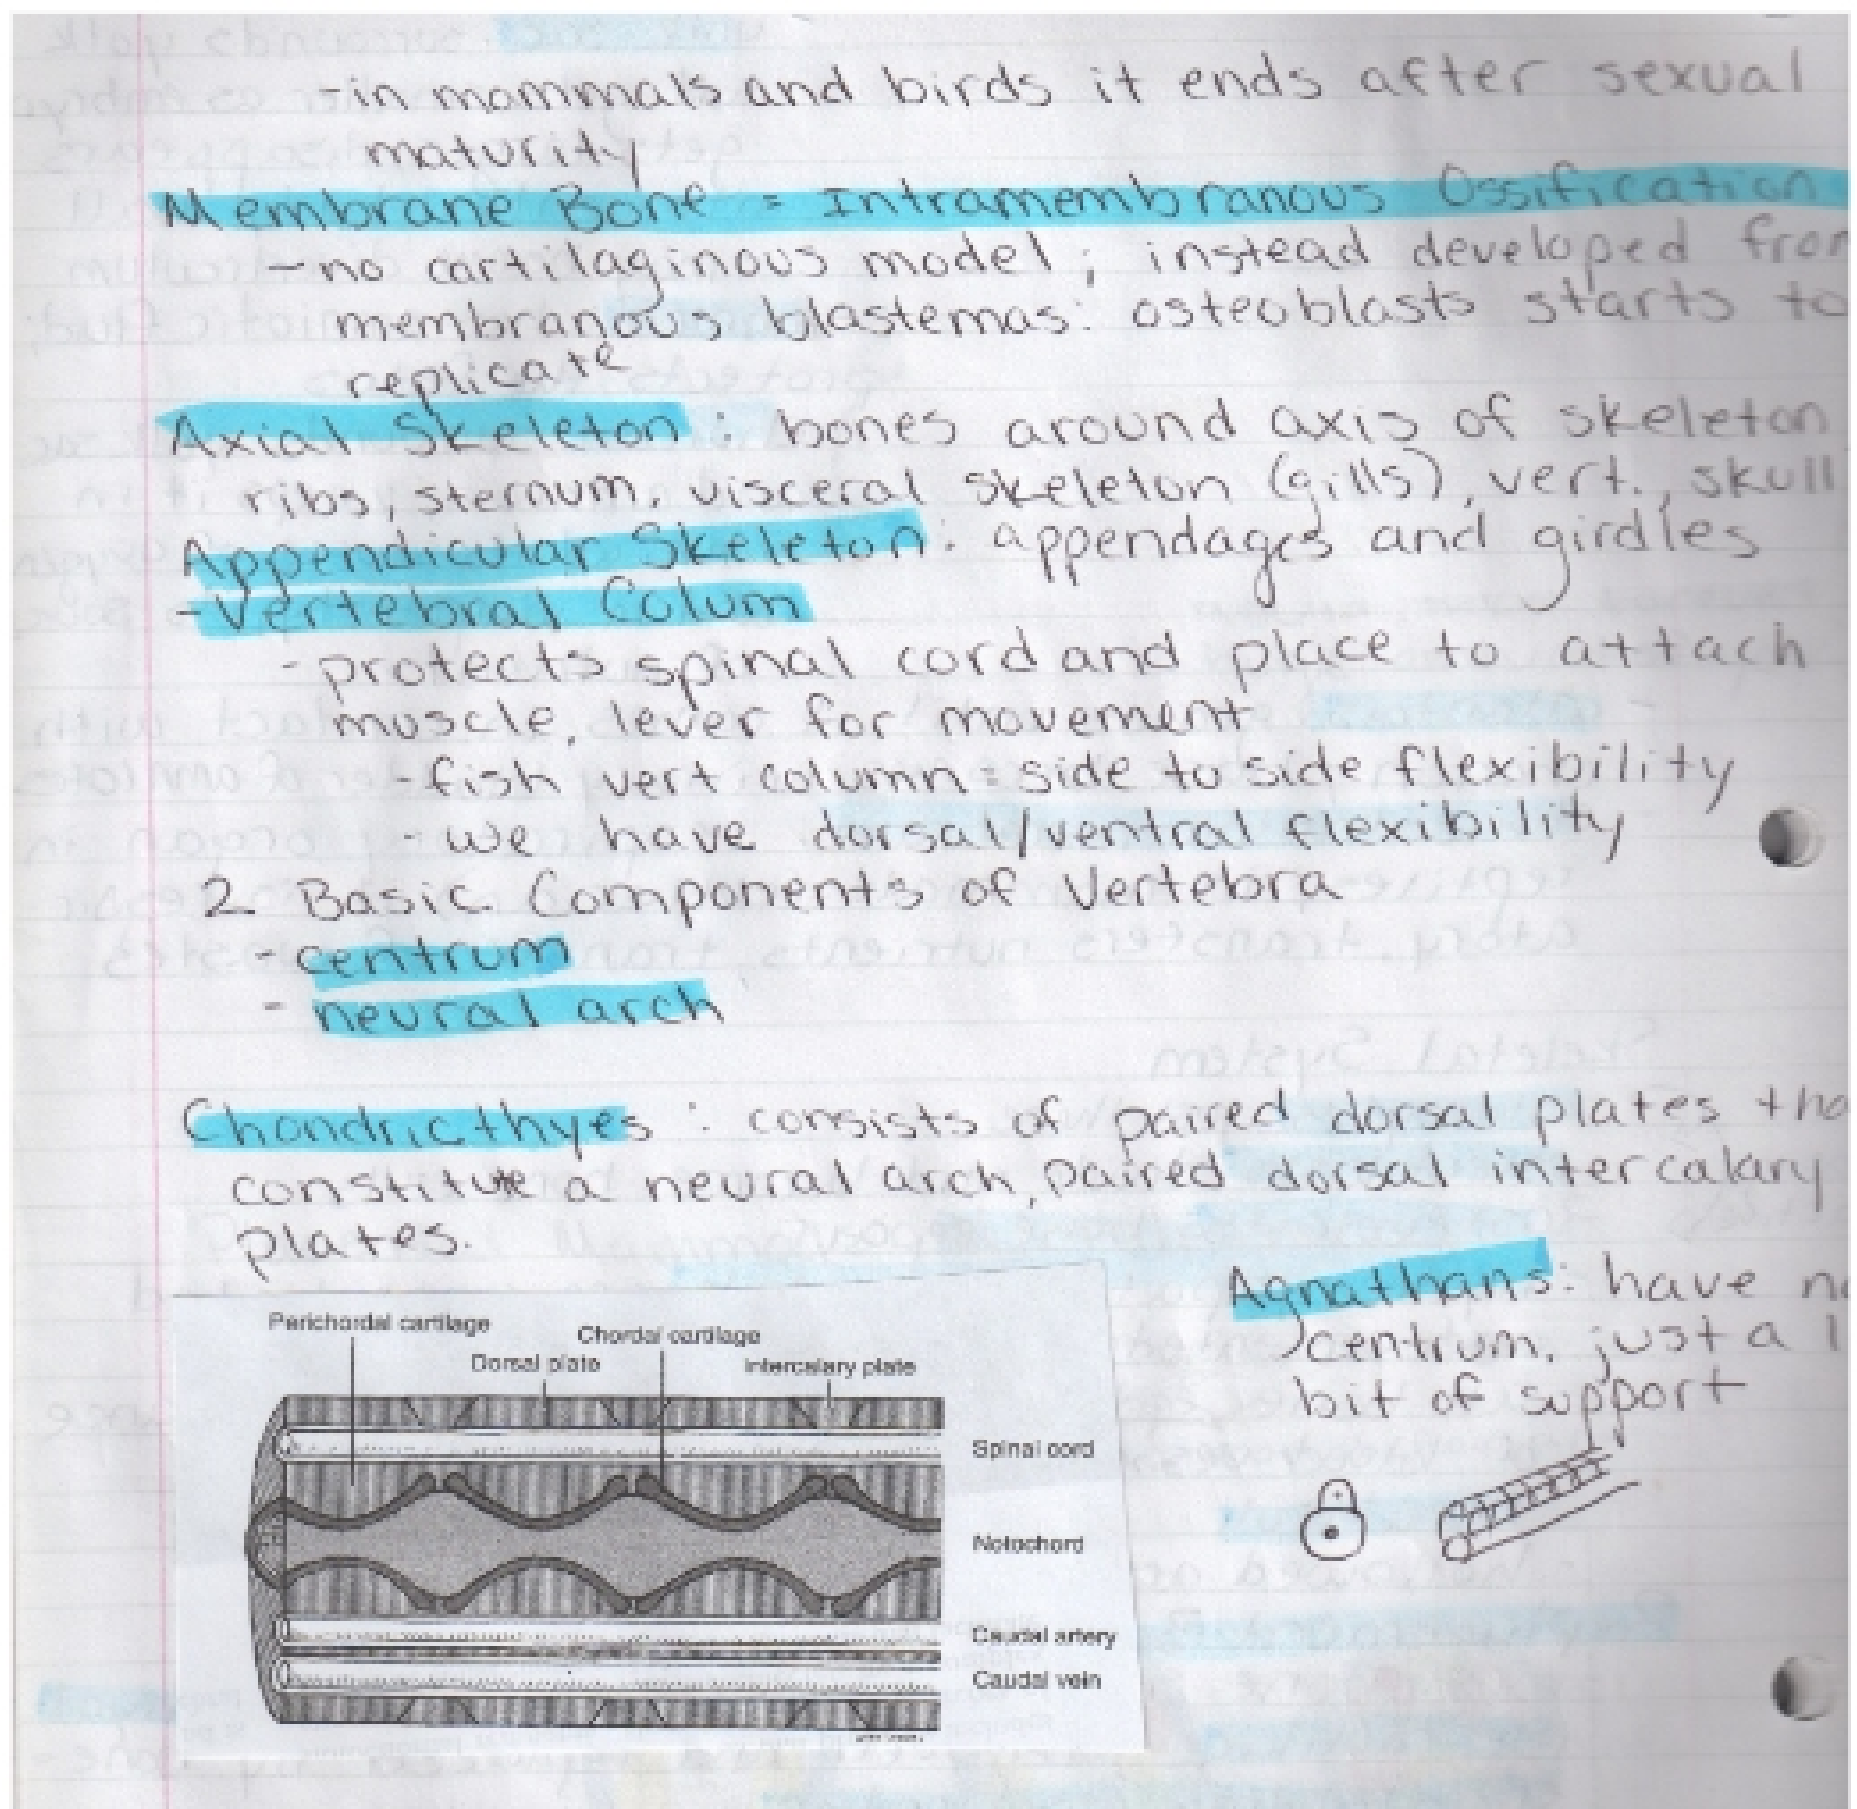 -in mammals and birds it ends after sexual
maturity
Membrane Bone = Intramembranous Ossification
-no cartilaginous model; instead developed from
membranous blastemas: osteoblasts starts to
replicate
Axial Skeleton: bones around axis of skeleton
ribs, sternum, visceral skeleton (gills), vert., skull
Appendicular Skeleton: appendages and girdles
-Vertebral Colum
-protects spinal cord and place to attach
muscle, lever for movement
-fish vert column = side to side flexibility
-we have dorsal/ventral flexibility
2 Basic Components of Vertebra
-centrum
-neural arch
Chondricthyes: consists of paired dorsal plates tha
constitute a neural arch, paired dorsal intercalary
plates.
Agnathans: have no
centrum, just a l
bit of support
Perichordal cartilage
Chordal cartilage
Dorsal plate
Intercalary plate
Spinal cord
Notochord
Caudal artery
Caudal vein